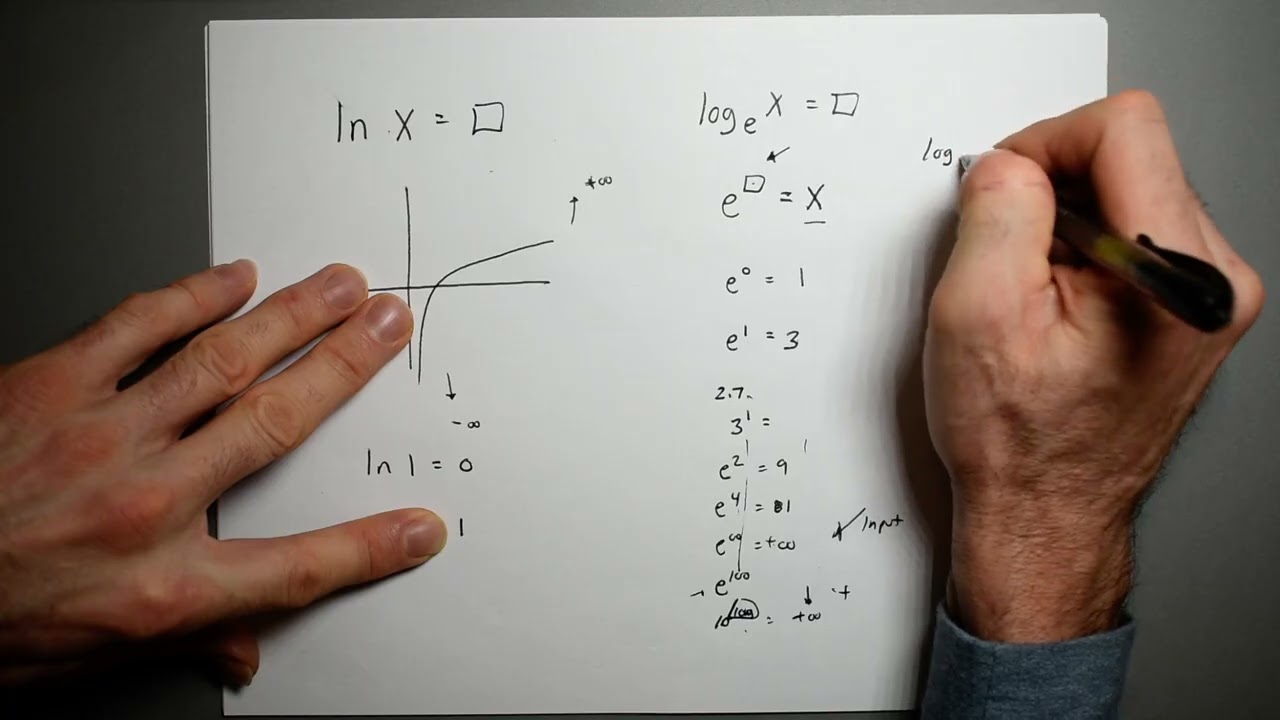 ln x = □
+∞
- ∞
ln 1 = 0
1
logₑ x = □
e^□ = x
e⁰ = 1
e¹ = 3
2.7
3¹ =
e² = 9
e⁴ = 81
e^∞ = +∞
Input
e¹⁰⁰
= +∞
+
log